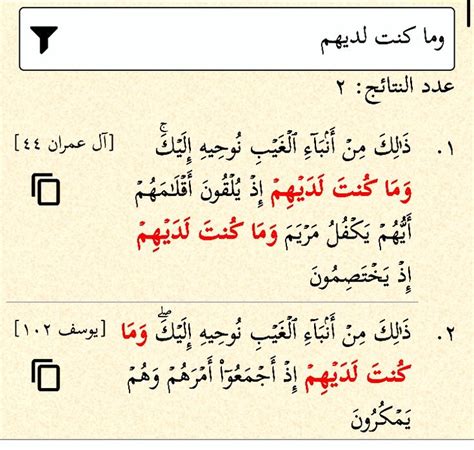 وما كنت لديهم
عدد النتائج: ٢
١. ذَٰلِكَ مِنْ أَنۢبَآءِ ٱلْغَيْبِ نُوحِيهِ إِلَيْكَ ۚ [آل عمران ٤٤]
وَمَا كُنتَ لَدَيْهِمْ إِذْ يُلْقُونَ أَقْلَـٰمَهُمْ
أَيُّهُمْ يَكْفُلُ مَرْيَمَ وَمَا كُنتَ لَدَيْهِمْ
إِذْ يَخْتَصِمُونَ
٢. ذَٰلِكَ مِنْ أَنۢبَآءِ ٱلْغَيْبِ نُوحِيهِ إِلَيْكَ ۖ وَمَا [يوسف ١٠٢]
كُنتَ لَدَيْهِمْ إِذْ أَجْمَعُوٓا۟ أَمْرَهُمْ وَهُمْ
يَمْكُرُونَ